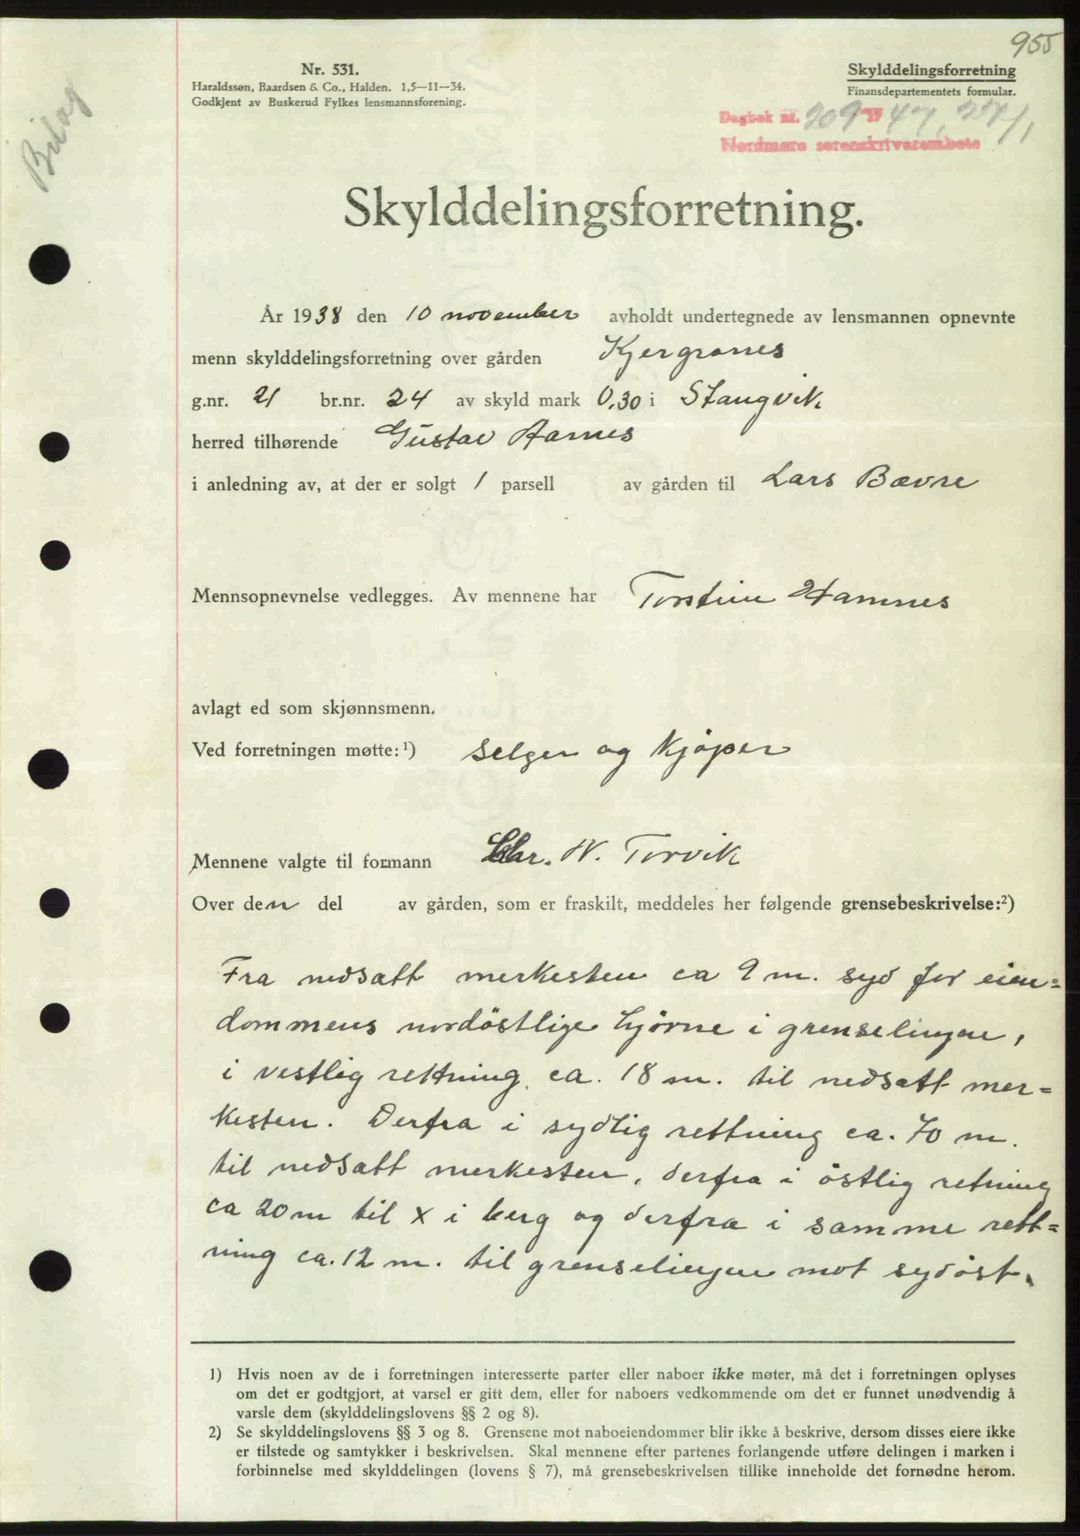 955
Nr. 531.
Haraldssøn, Baardsen & Co., Halden. 1,5—11—34.
Godkjent av Buskerud Fylkes lensmannsforening.
Skylddelingsforretning
Finansdepartementets formular.
Dagbok nr. 209 19 47, 27/1,
Nordmøre sorenskriverembete
Bilag
Skylddelingsforretning.
År 1938 den 10 november avholdt undertegnede av lensmannen opnevnte
menn skylddelingsforretning over gården Kjergrones
g.nr. 21 br.nr. 24 av skyld mark 0,30 i Stangvik
herred tilhørende Gustav Aarnes
i anledning av, at der er solgt 1 parsell av gården til Lars Bævre
Mennsopnevnelse vedlegges. Av mennene har Torstein Hamnes
avlagt ed som skjønnsmenn.
Ved forretningen møtte: ¹) Selger og Kjøper
Mennene valgte til formann Chr. N. Torvik
Over den del av gården, som er fraskilt, meddeles her følgende grensebeskrivelse:²)
Fra nedsatt merkesten ca 9 m. syd for eien=
dommens nordöstlige hjörne i grenselingen,
i vestlig rettning, ca. 18 m. til nedsatt mer=
kesten. Derfra i sydlig rettning ca. 70 m.
til nedsatt merkesten, derfra i östlig retning
ca 20 m til X i berg og derfra i samme rett=
ning ca. 12 m. til grenselingen mot sydöst.
1) Hvis noen av de i forretningen interesserte parter eller naboer ikke møter, må det i forretningen oplyses
om det er godtgjort, at varsel er gitt dem, eller for naboers vedkommende om det er funnet unødvendig å
varsle dem (skylddelingslovens §§ 2 og 8).
2) Se skylddelingslovens §§ 3 og 8. Grensene mot naboeiendommer blir ikke å beskrive, dersom disses eiere ikke
er tilstede og samtykker i beskrivelsen. Skal mennene efter partenes forlangende utføre delingen i marken i
forbinnelse med skylddelingen (lovens § 7), må grensebeskrivelsen tillike inneholde det fornødne herom.